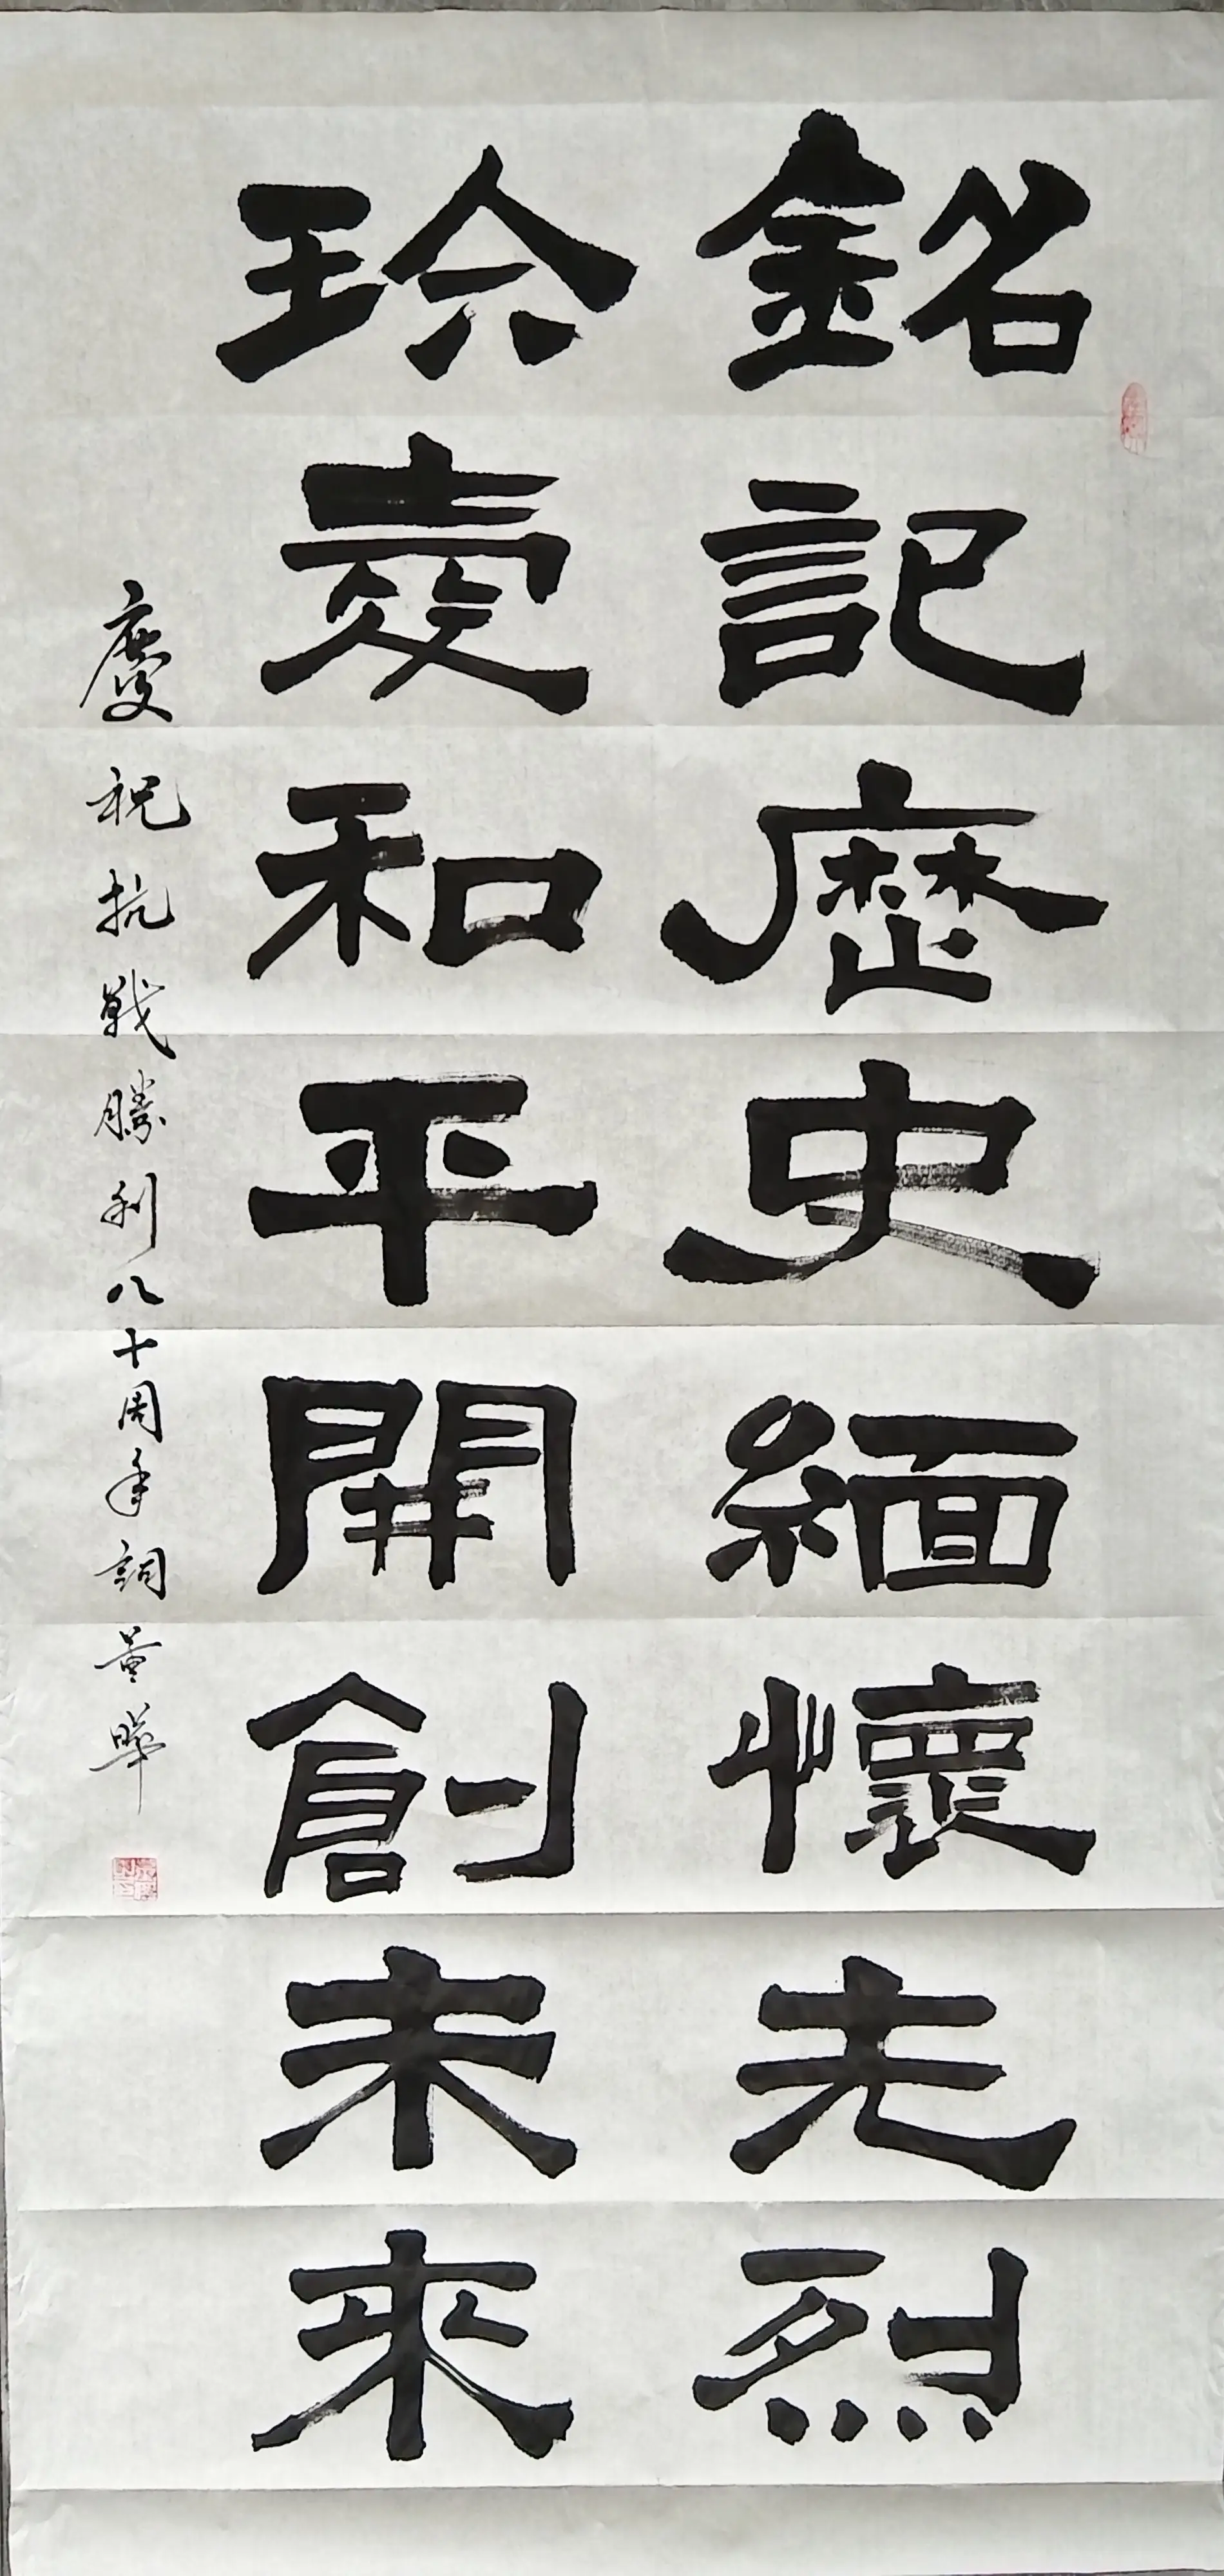 銘記歷史緬懷先烈
珍愛和平開創未來
慶祝抗戰勝利八十周年詞景曄